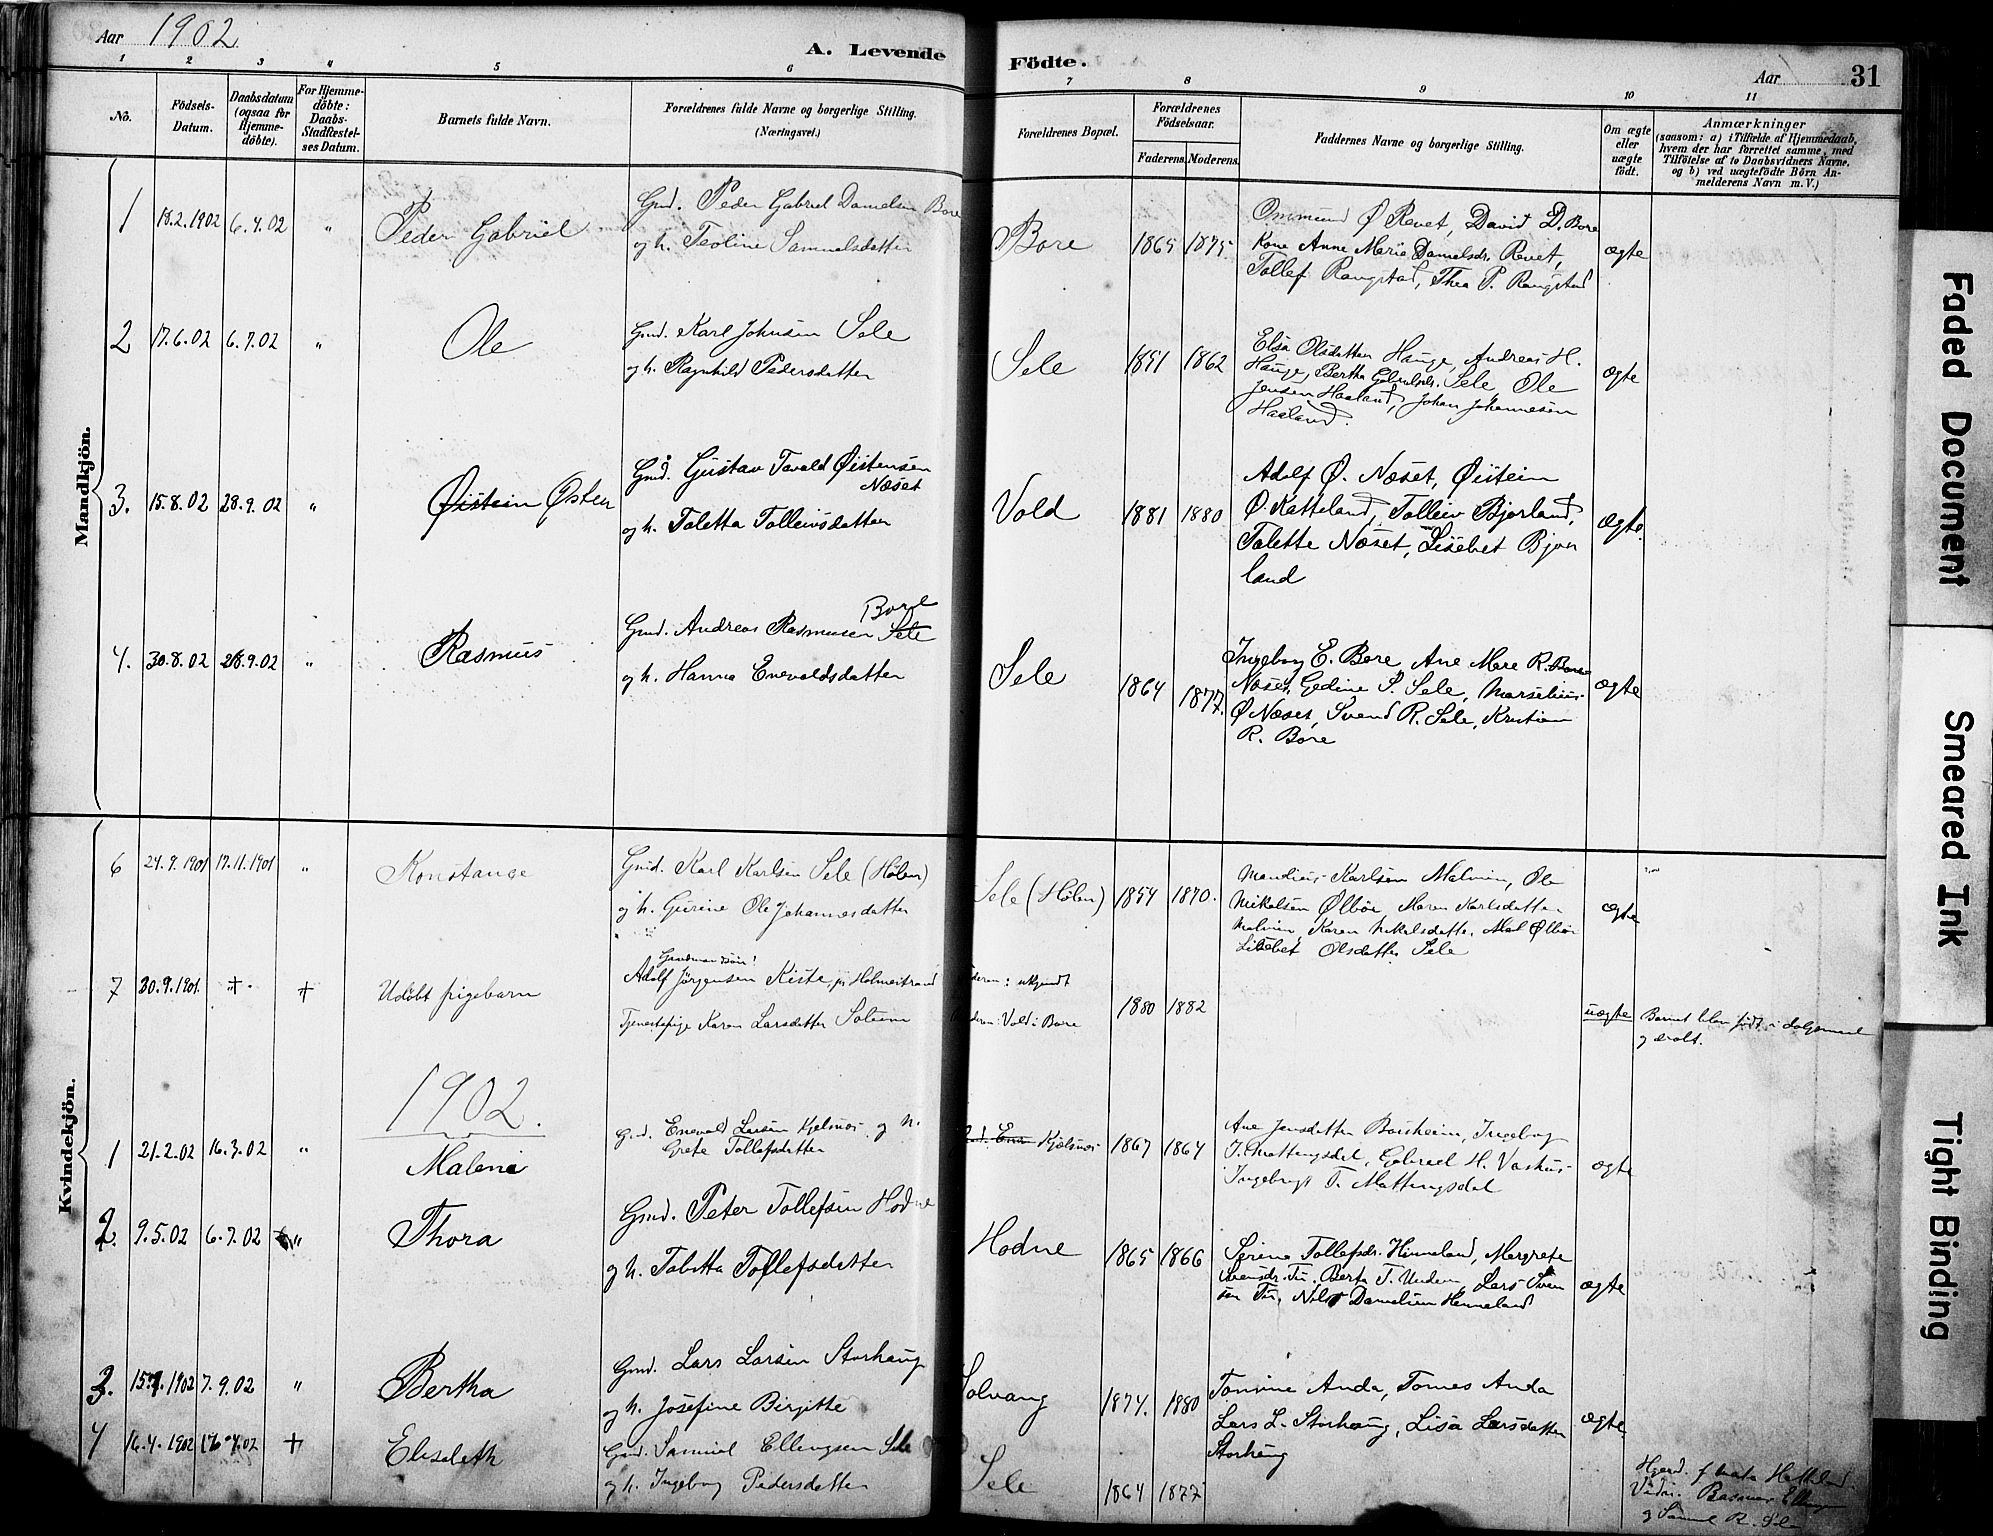 Aar 1902
A. Levende
Födte.
Aar
31
1 2 3 4 5 6 7 8 9 10 11
No.
Födsels-
Datum.
Daabsdatum
(ogsaa for
Hjemme-
döbte).
For Hjemme-
döbte:
Daabs-
Stadfæstel-
ses Datum.
Barnets fulde Navn.
Forældrenes fulde Navne og borgerlige Stilling.
(Næringsvei.)
Forældrenes Bopæl.
Forældrenes
Födselsaar.
Faderens. Moderens.
Faddernes Navne og borgerlige Stilling.
Om ægte
eller
uægte
födt.
Anmærkninger
(saasom: a) i Tilfælde af Hjemmedaab,
hvem der har forrettet samme, med
Tilföielse af to Daabsvidners Navne,
og b) ved uægtefödte Börn An-
melderens Navn m. V.)
Mandkjön.
1 18.2.1902 6.4.02 " Peder Gabriel
Gmd. Peder Gabriel Danielsen Bore
og h. Teoline Samuelsdatter
Bore 1865 1875
Ommund Ø Revet, David D. Bore
Kone Anne Marie Danielsdr. Revet,
Tollef Rangstad, Thea P. Rangstad
ægte
2 17.6.02 6.7.02 " Ole
Gmd. Karl Johnsen Sele
og h. Ragnhild Pedersdatter
Sele 1851 1862
Elsa Olsdatter Hauge, Andreas H.
Hauge, Bertha Gabrielsdr. Sele Ole
Jensen Haaland, Johan Johannesen
Haaland.
ægte
3. 15.8.02 28.9.02 " Øistein Østen
Gmd. Gustav Tovald Øistensen
Næset
og h. Taletta Tolleivsdatter
Vold 1881 1880
Adolf Ø. Næset, Øistein
Ø. Katteland, Tolleiv Bjorland,
Talette Næset, Lisebet Bjor
land
ægte.
4. 30.8.02 28.9.02 " Rasmus
Bore
Gmd. Andreas Rasmusen Sele
og h. Hanna Enevaldsdatter
Sele 1864 1877.
Ingeborg E. Bore, Ane Mere R. Bore
Næset, Gedine S. Sele, Marselius
Ø Næset, Svend R. Sele, Kristian
R. Bore
ægte
Kvindekjön.
6 24.9.1901 17.11.1901 " Konstanse
Gmd. Karl Karlsen Sele (Hølen)
og h. Gurine Ole Johannesdatter
Sele (Hølen) 1854 1870.
Mandius Karlsen Malmin, Ole
Mikalsen Ølbör, Maren Karlsdatter
Malmin Karen Mikalsdatter, Ølbör
Lisebet Olsdatter Sele
ægte
7 30.9.1901 + + Udøbt pigebarn
Adolf Jörgensen Kiste, Holmestrand
Tjenestepige Karen Larsdatter Solum
: ukjendt
: Vold i Bore
1880 1882
uægte
Barnet blev født i dølgsmaal
og dræbt.
1902.
1 21.2.02 16.3.02 " Malene
Gmd. Enevald Larsen Kjelsnes og h.
Grete Tollefsdatter
Kjølsnes 1867 1864
Ane Jensdatter Borsheim, Ingeborg
T. Mattingsdal, Gabriel H. Vashus
Ingebrigt T. Mattingsdal
ægte
2. 9.5.02 6.7.02 " Thora
Gmd. Peter Tollefsen Hodne
og h. Tabitta Tollefsdatter
Hodne 1865 1866
Serine Tollefsdr. Hinneland, Margrete
Svensdr. Tu, Berta T. Undem, Lars Sven
sen Tu, Nils Danielsen Henneland
ægte
3. 15.7.1902 7.9.02 " Bertha
Gmd. Lars Larsen Storhaug
og h. Josefine Birgitte
Solvang 1874. 1880
Tomine Anda, Tomes Anda
Lars L. Storhaug, Lisa Larsdatter
Storhaug
ægte
4 16.4.1902 16.4.02 + Elisabeth
Gmd. Samuel Ellingsen Sele
og h. Ingeborg Pedersdatter
Sele 1864 1877
Hjemd. f
Vidn. Rasmus
og Samuel R. Sele
Faded Document
Smeared Ink
Tight Binding